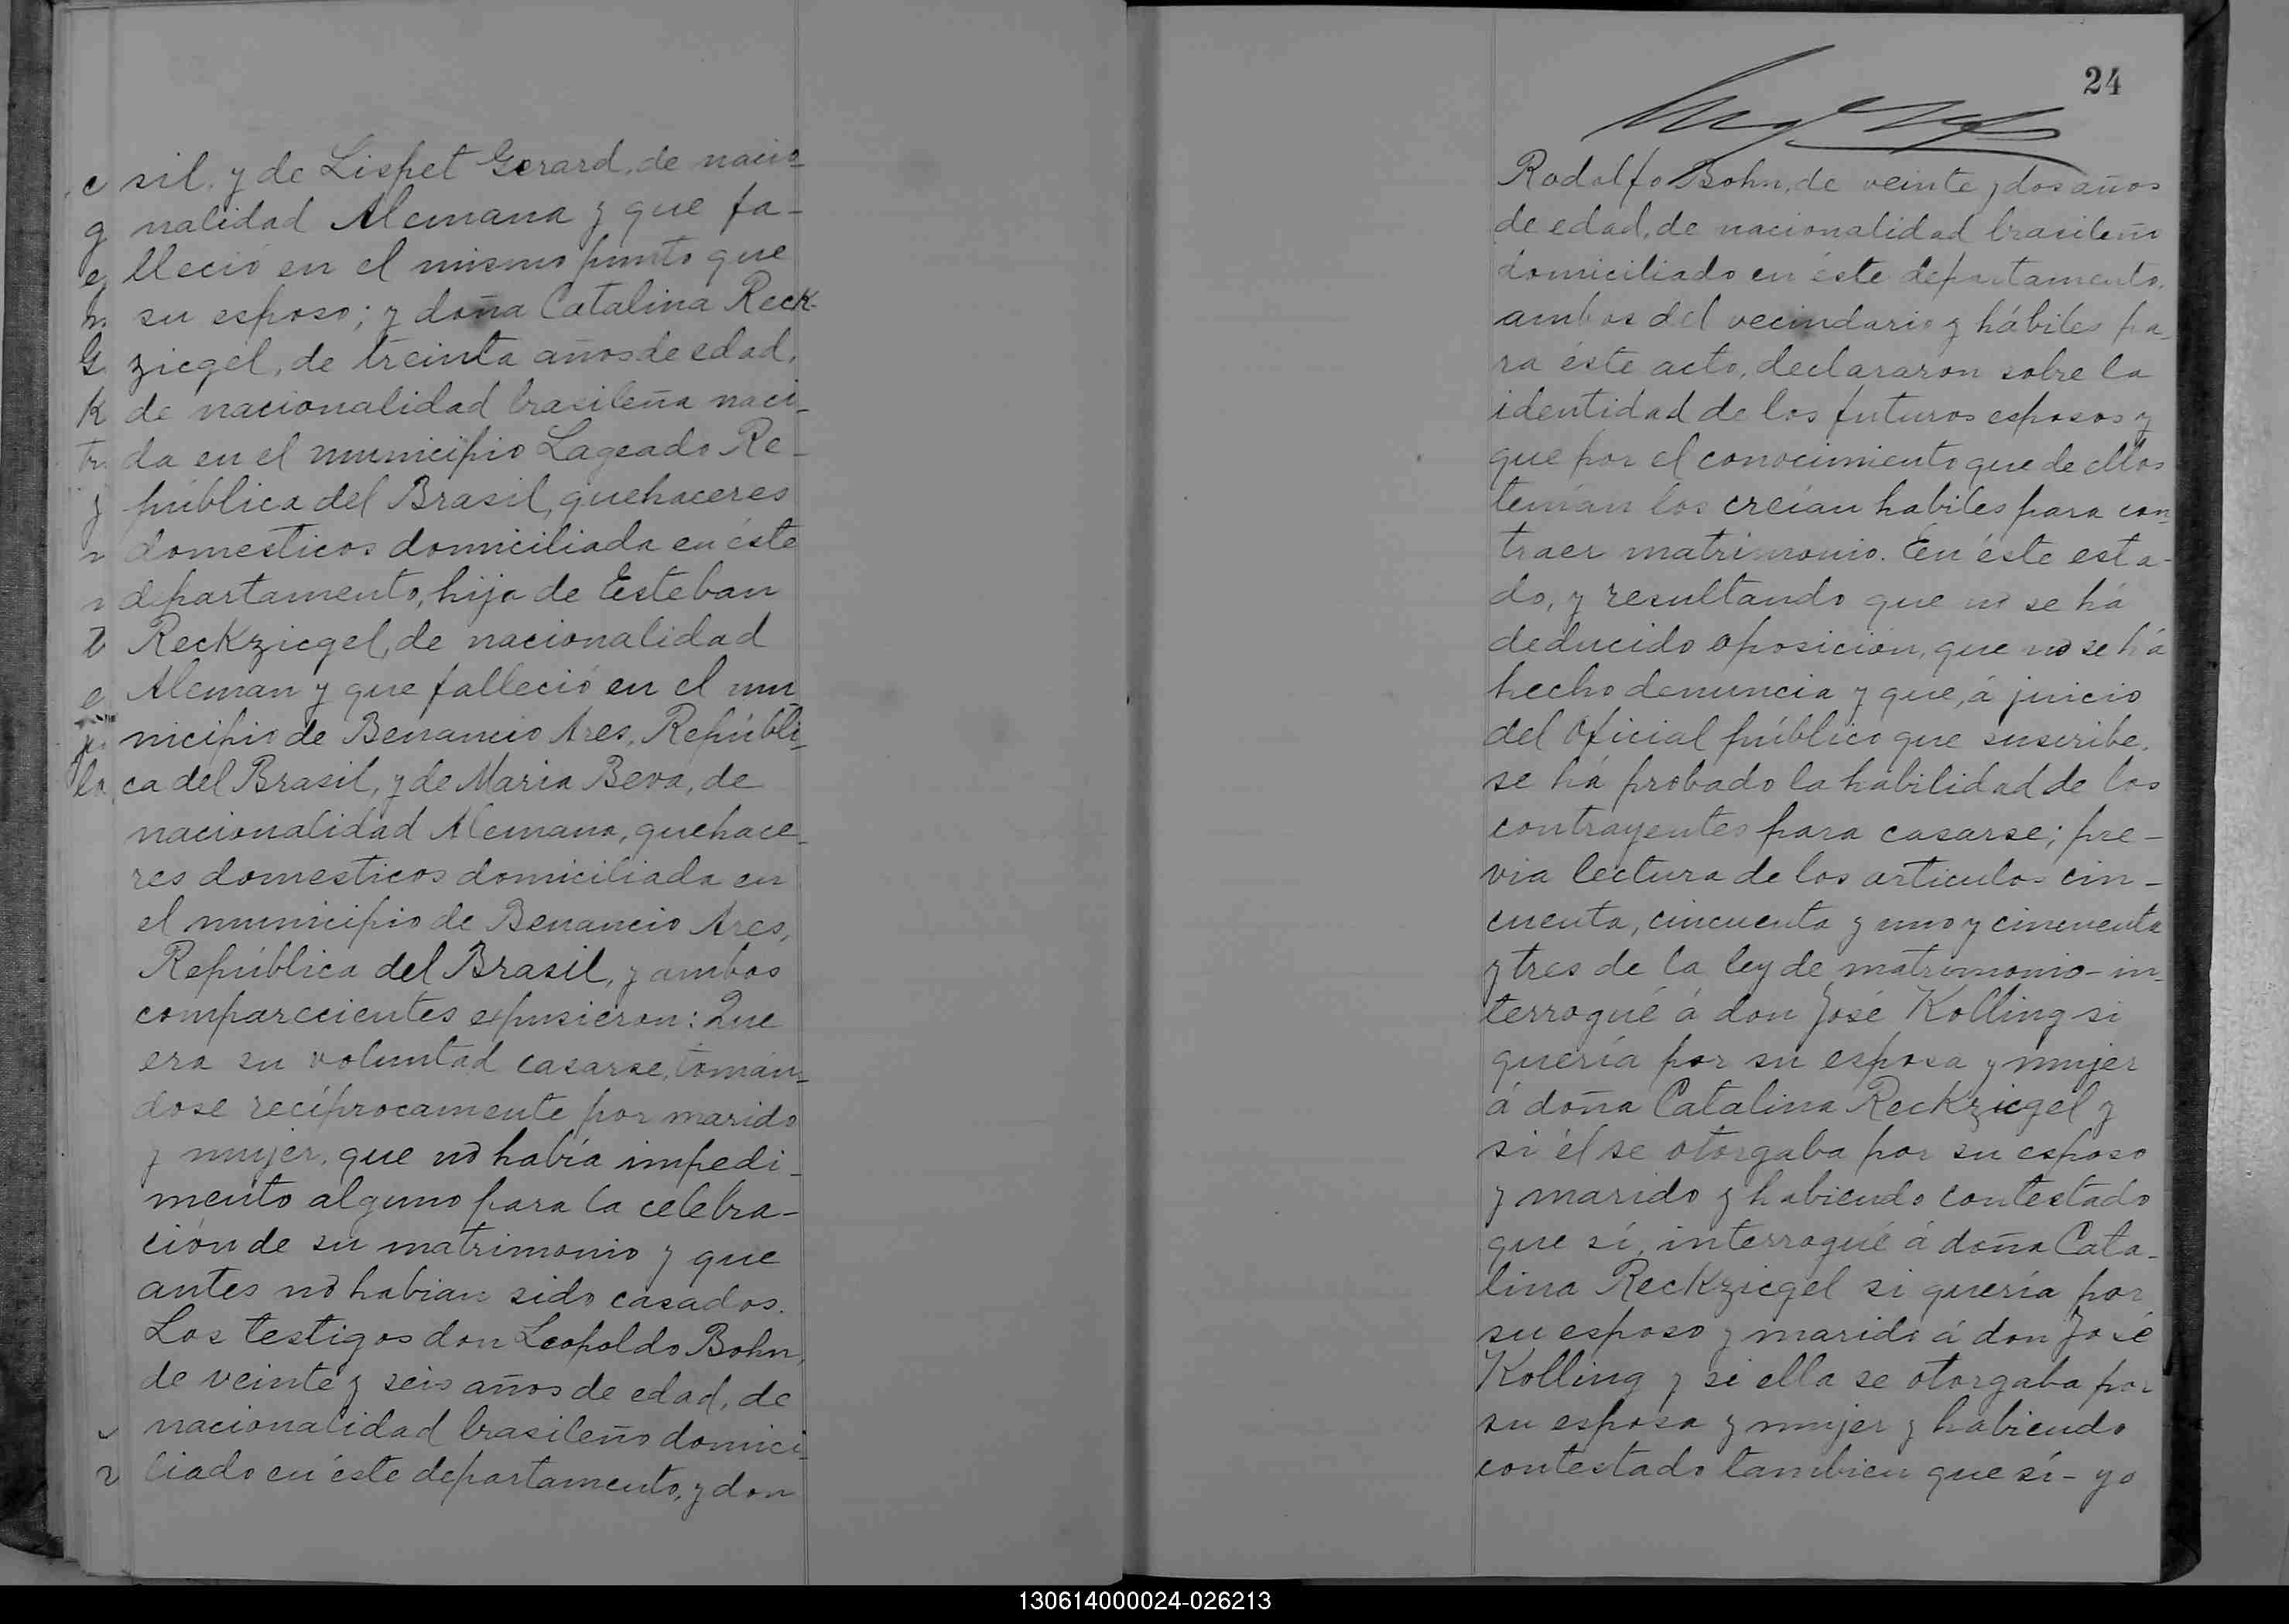 sil, y de Lispet Gerard, de nacio-
nalidad Alemana y que fa-
lleció en el mismo punto que
su esposo; y doña Catalina Reck-
ziegel, de treinta años de edad,
de nacionalidad brasileña naci-
da en el municipio Lageado Re-
pública del Brasil, quehaceres
domesticos domiciliada en éste
departamento, hija de Esteban
Reckziegel, de nacionalidad
Aleman y que falleció en el mu-
nicipio de Benancio Ares, Repúbli-
ca del Brasil, y de Maria Beva, de
nacionalidad Alemana, quehace-
res domesticos domiciliada en
el municipio de Benancio Ares,
República del Brasil, y ambos
comparecientes expusieron: Que
era su voluntad casarse, tomán-
dose recíprocamente por marido
y mujer, que no había impedi-
mento alguno para la celebra-
ción de su matrimonio y que
antes no habian sido casados.
Los testigos don Leopoldo Bohn,
de veinte y seis años de edad, de
nacionalidad brasileño domici-
liado en éste departamento, y don
24
Rodolfo Bohn, de veinte y dos años
de edad, de nacionalidad brasileño
domiciliado en éste departamento,
ambos del vecindario y hábiles pa-
ra éste acto, declararon sobre la
identidad de los futuros esposos y
que por el conocimiento que de ellos
tenían los creían habiles para con-
traer matrimonio. En éste esta-
do, y resultando que no se há
deducido oposición, que no se há
hecho denuncia y que, á juicio
del Oficial público que suscribe,
se há probado la habilidad de los
contrayentes para casarse; pre-
via lectura de los articulos cin-
cuenta, cincuenta y uno y cincuenta
y tres de la ley de matrimonio - in-
terrogué á don José Kolling si
quería por su esposa y mujer
á doña Catalina Reckziegel y
si él se otorgaba por su esposo
y marido y habiendo contestado
que sí, interrogué á doña Cata-
lina Reckziegel si quería por
su esposo y marido á don José
Kolling y si ella se otorgaba por
su esposa y mujer y habiendo
contestado tambien que sí - yo
130614000024-026213